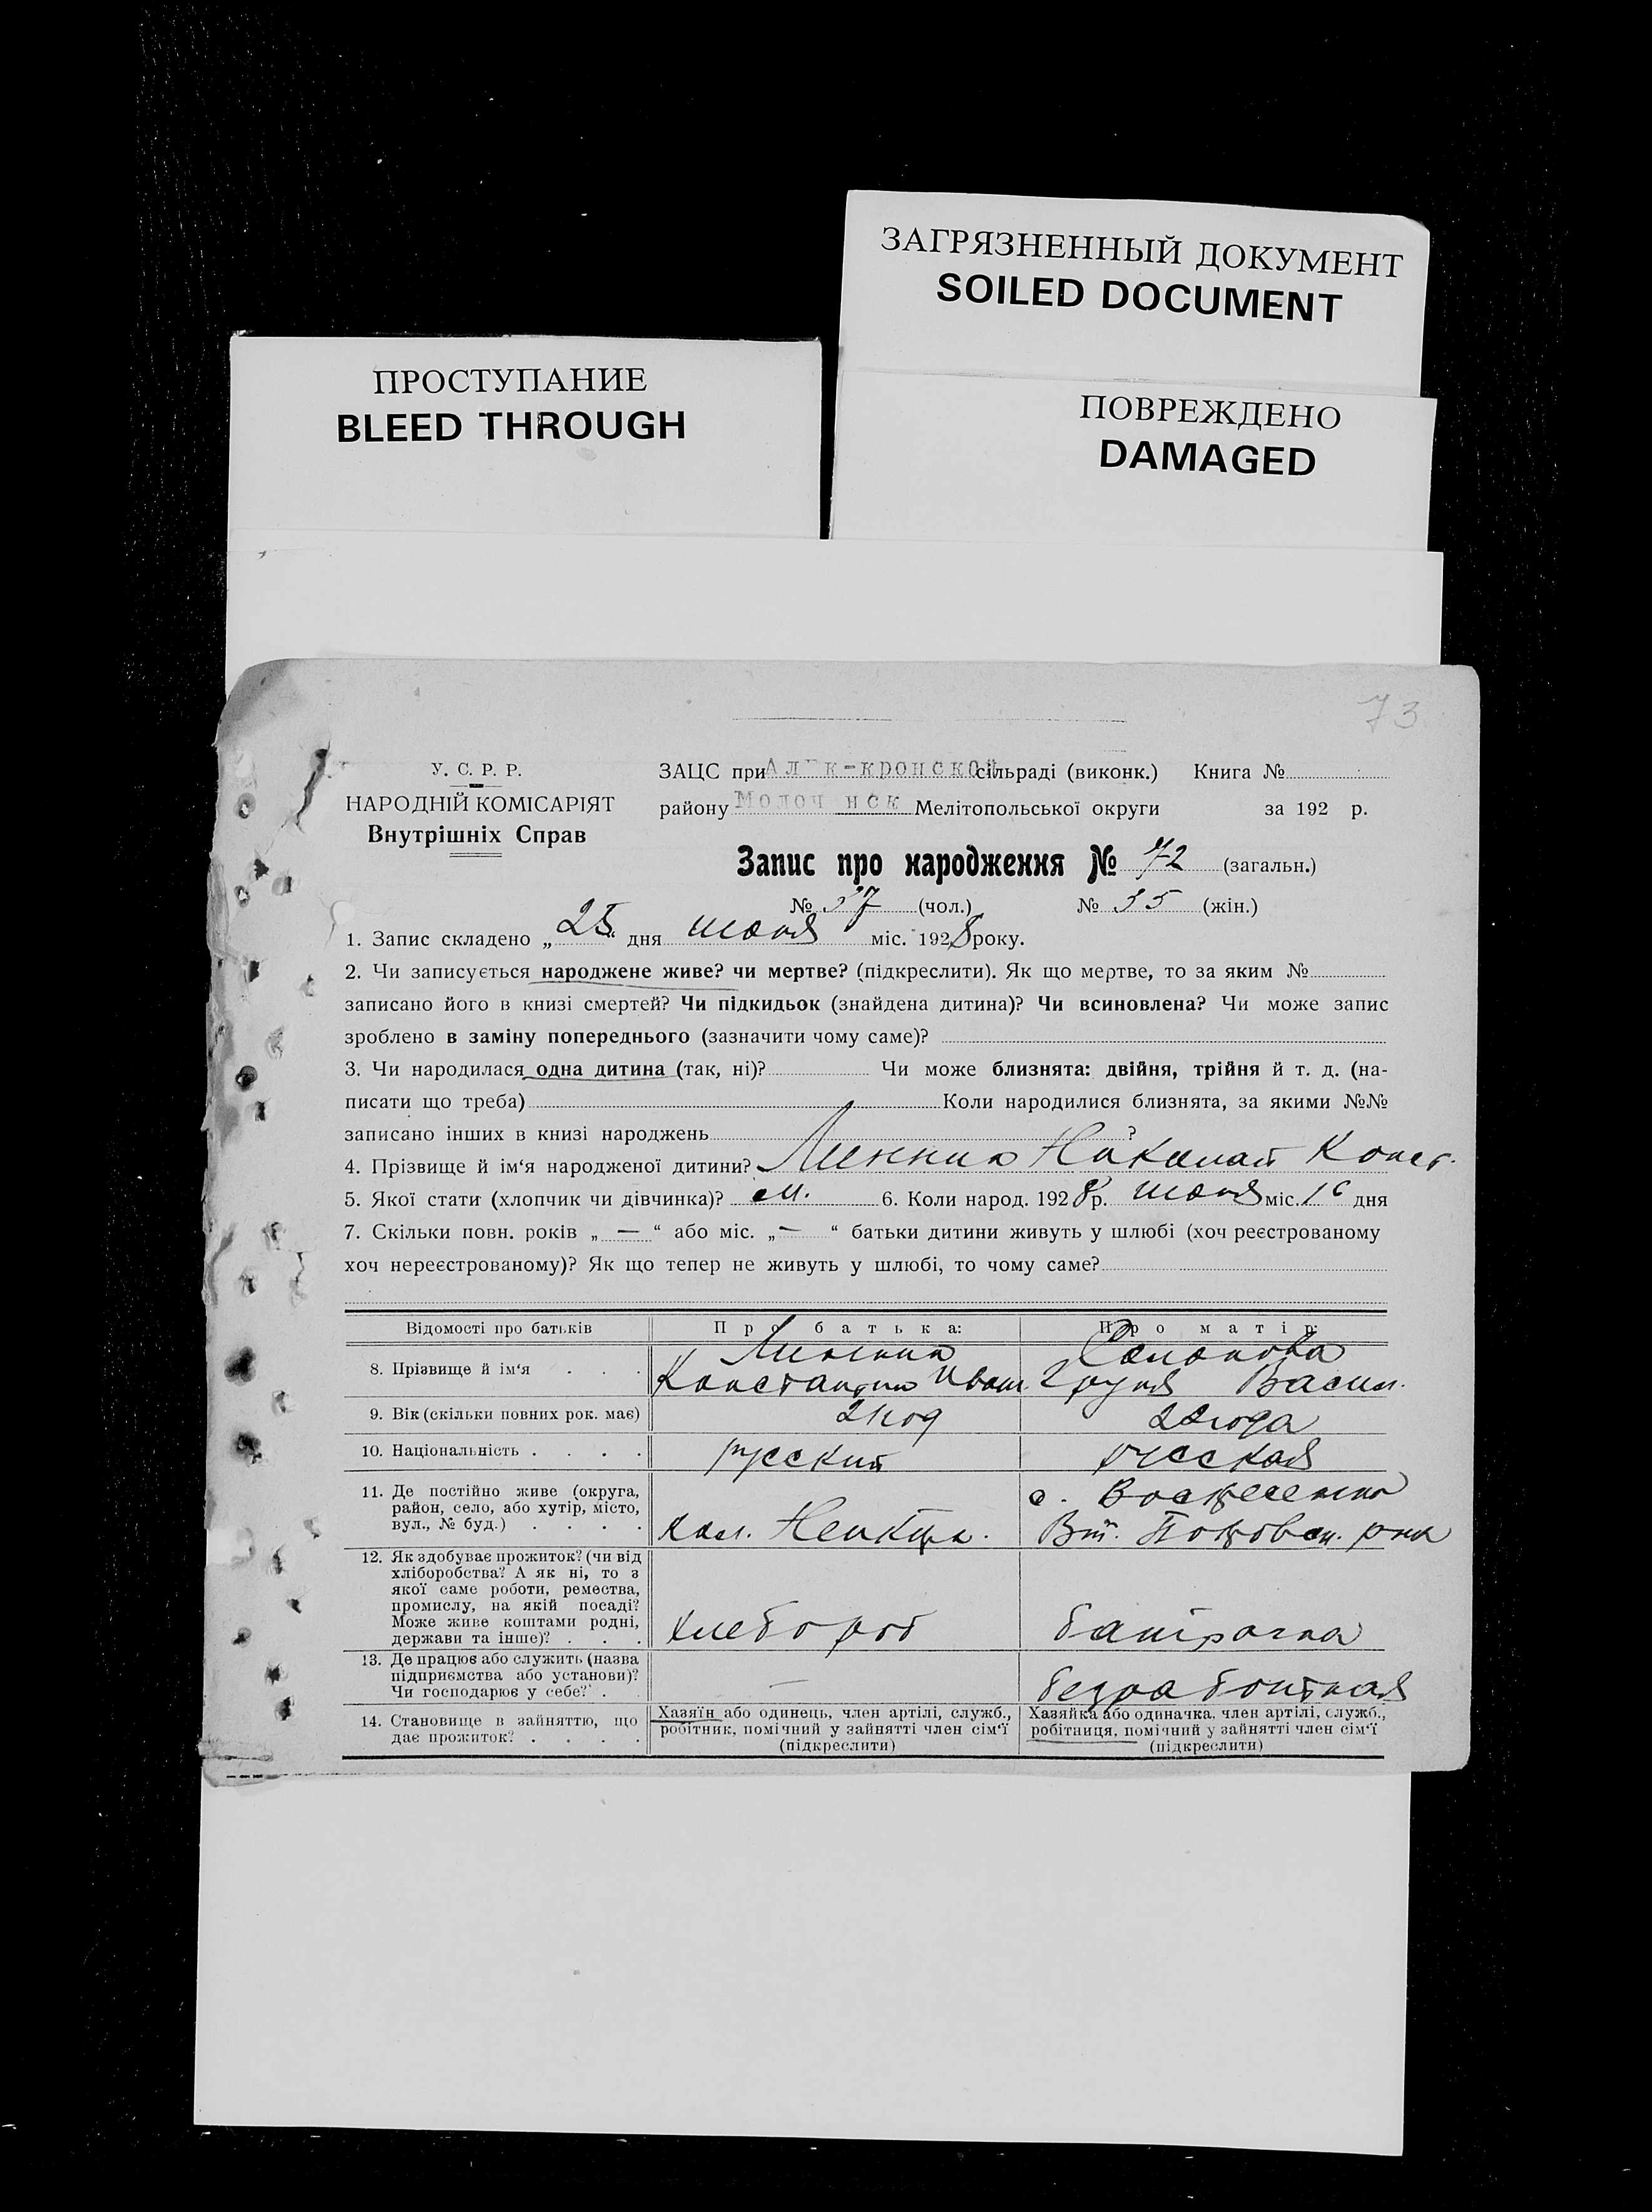 ЗАГРЯЗНЕННЫЙ ДОКУМЕНТ
SOILED DOCUMENT
ПРОСТУПАНИЕ
BLEED THROUGH
ПОВРЕЖДЕНО
DAMAGED
73
У. С. Р. Р.
НАРОДНІЙ КОМІСАРІЯТ
Внутрішніх Справ
ЗАЦС при сільраді (виконк.) Книга №
району Молоч нск Мелітопольської округи за 192 р.
Запис про народження № 72 (загальн.)
№ 37 (чол.) № 35 (жін.)
1. Запис складено „25“ дня июня міс. 1928 року.
2. Чи записується народжене живе? чи мертве? (підкреслити). Як що мертве, то за яким №
записано його в книзі смертей? Чи підкидьок (знайдена дитина)? Чи всиновлена? Чи може запис
зроблено в заміну попереднього (зазначити чому саме)?
3. Чи народилася одна дитина (так, ні)? Чи може близнята: двійня, трійня й т. д. (на-
писати що треба) Коли народилися близнята, за якими №№
записано інших в книзі народжень ?
4. Прізвище й ім‘я народженої дитини? Николай Конст.
5. Якої стати (хлопчик чи дівчинка)? м. 6. Коли народ. 1928 р. июня міс. 16 дня
7. Скільки повн. років „ — “ або міс. „ — “ батьки дитини живуть у шлюбі (хоч реєстрованому
хоч нереєстрованому)? Як що тепер не живуть у шлюбі, то чому саме?
Відомості про батьків Про батька: Про матір:
8. Прізвище й ім‘я . . .
Константин Иван. Груня Васил.
9. Вік (скільки повних рок. має) 21 год 22 года
10. Національність . . . . русский русская
11. Де постійно живе (округа,
район, село, або хутір, місто,
вул., № буд.) . . . .
кол. с. Воскресенка
12. Як здобуває прожиток? (чи від
хліборобства? А як ні, то з
якої саме роботи, ремества,
промислу, на якій посаді?
Може живе коштами родні,
держави та інше)? . . .
хлебороб батрачка
13. Де працює або служить (назва
підприємства або установи)?
Чи господарює у себе? .
— безработная
14. Становище в зайняттю, що
дає прожиток? . . . .
Хазяїн або одинець, член артілі, служб.,
робітник, помічний у зайнятті член сім‘ї
(підкреслити)
Хазяйка або одиначка, член артілі, служб.,
робітниця, помічний у зайнятті член сім‘ї
(підкреслити)